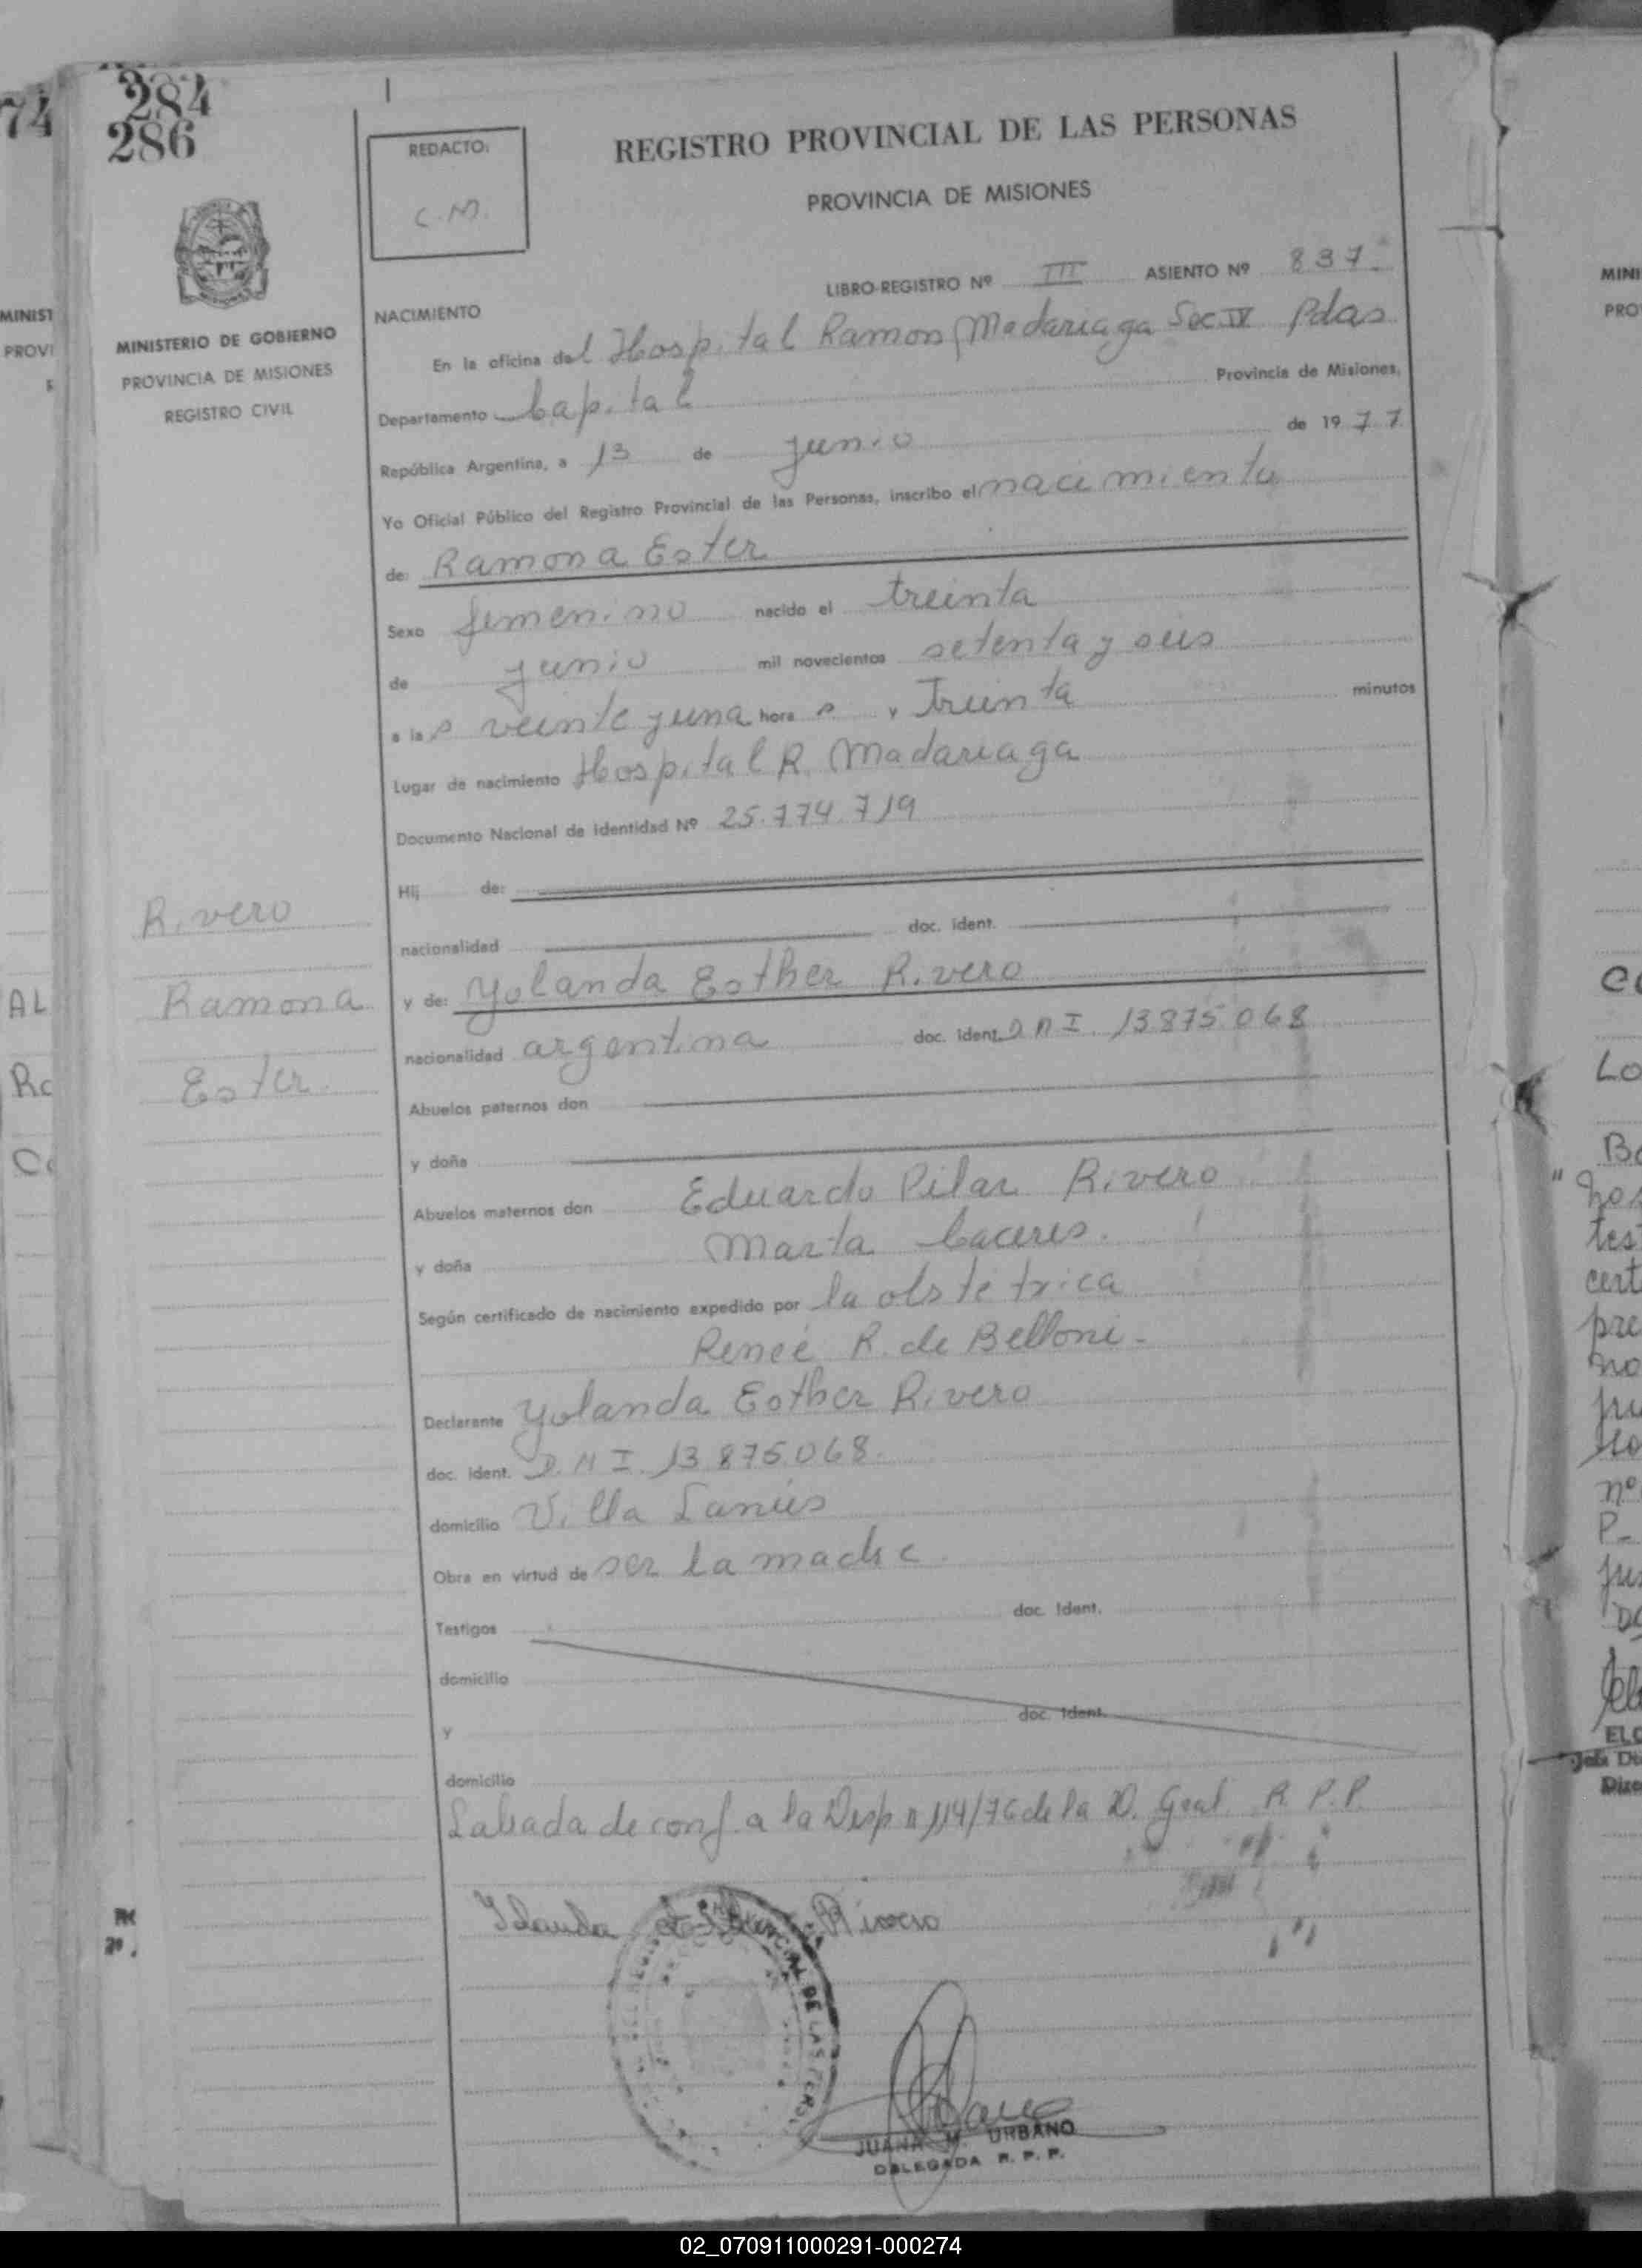 74
284
286
REDACTO:
C.M.
REGISTRO PROVINCIAL DE LAS PERSONAS
PROVINCIA DE MISIONES
LIBRO-REGISTRO Nº III ASIENTO Nº 837
MINISTERIO DE GOBIERNO
PROVINCIA DE MISIONES
REGISTRO CIVIL
NACIMIENTO
En la oficina del Hospital Ramon Madariaga Sec IV Pdas
Departamento Capital Provincia de Misiones,
República Argentina, a 13 de junio de 1977
Yo Oficial Público del Registro Provincial de las Personas, inscribo el nacimiento
de: Ramona Ester
Sexo femenino nacido el treinta
de junio mil novecientos setenta y seis
a las veinte y una horas y Treinta minutos
Lugar de nacimiento Hospital R. Madariaga
Documento Nacional de identidad Nº 25.774.719
Hij de:
nacionalidad doc. ident.
y de: Yolanda Esther Rivero
nacionalidad argentina doc. ident. D.N.I. 13875.068
Abuelos paternos don
y doña
Abuelos maternos don Eduardo Pilar Rivero
y doña Marta Caceres.
Según certificado de nacimiento expedido por la obstetrica
Reneé R. de Belloni-
Declarante Yolanda Esther Rivero
doc. ident. D.N.I. 13.875.068.
domicilio Villa Lanús
Obra en virtud de ser la madre.
Testigos doc. Ident.
domicilio
y doc. Ident.
domicilio
Labada de conf. a la Disp n 114/76 de la D. Gral. R.P.P.
Rivero
Ramona
Ester.
Rivero
PROVINCIAL DE LAS PERSO
JUANA M. URBANO
DELEGADA R. P. P.
MINIST
PROVI
AL
Ro
Co
MINI
PRO
Lo
Bo
tes
cert
pre
no
nº
P-
ELO
02_070911000291-000274